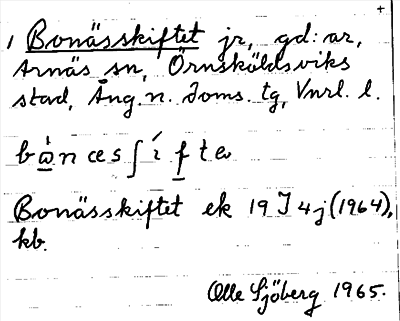 +
1 Bonässkiftet jr, gd: ar,
Arnäs sn, Örnsköldsviks
stad, Ång. n. doms. tg, Vnrl. l.
Bonässkiftet ek 19 J 4 j (1964),
kb.
Olle Sjöberg 1965.